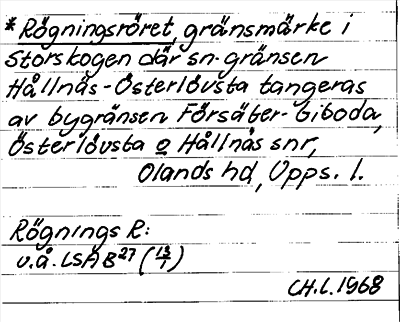 * Rögningsröret, gränsmärke i
Storskogen där sn.gränsen
Hållnäs-Österlövsta tangeras
av bygränsen Försäter-Giboda,
Österlövsta o Hållnäs snr,
Olands hd, Upps. l.
Rögnings R:
u.å. LSA B27 (13/1)
CH.L.1968